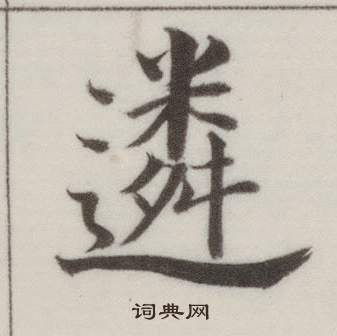 遴
词典网